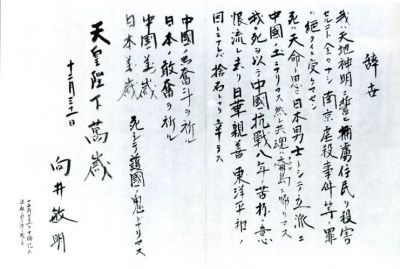 辞世
我ハ天地神明ニ誓ヒ捕虜住民ヲ殺害
セルコト全々ナシ 南京虐殺事件等ノ罪
ハ絶対ニ受ケマセン
死ハ天命ト思ヒ日本男士トシテ立派ニ
中國ノ土ニナリマス 然レ共魂ハ島ニ帰リマス
我ガ死ヲ以テ中國抗戦八年ノ苦杯ノ遺
恨流レ去リ日華親善東洋平和ノ
因トモナレバ捨石トナリ幸デス
中國ノ御奮斗ヲ祈ル
日本ノ敢奮ヲ祈ル
中國萬歳
日本萬歳 死シテ護國ノ鬼トナリマス
天皇陛下萬歳
十二月三十一日
向井敏明